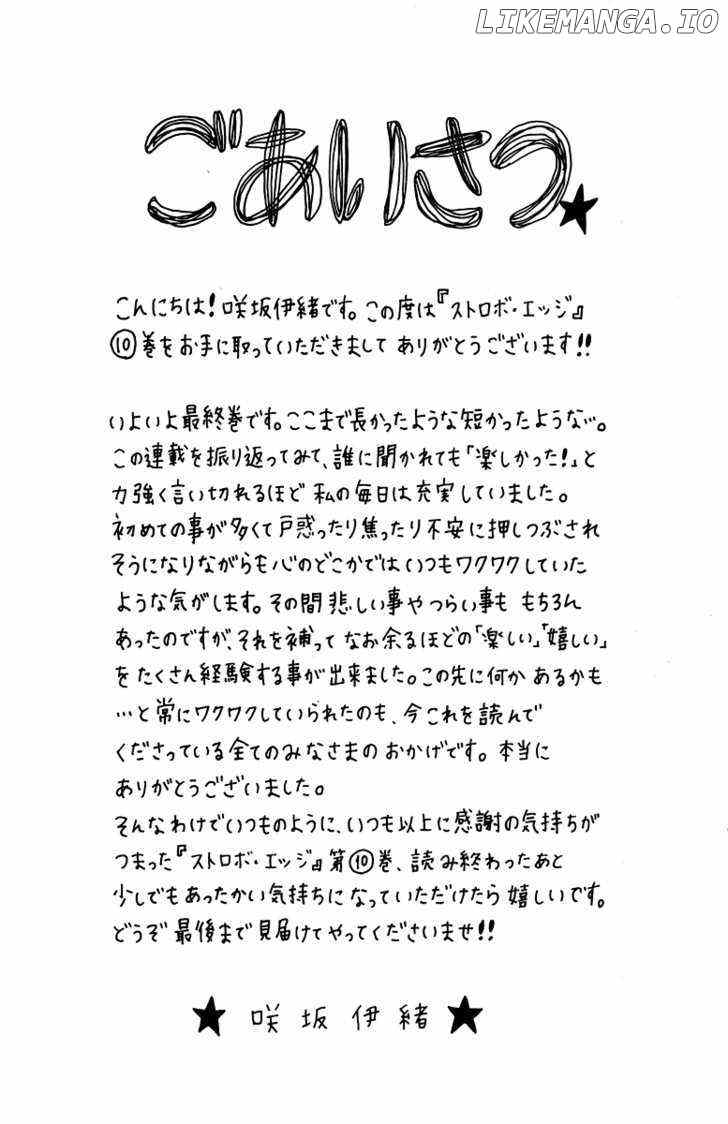 LIKEMANGA.IO
ごあいさつ★
こんにちは!咲坂伊緒です。この度は『ストロボ・エッジ』
⑩巻をお手に取っていただきまして ありがとうございます!!
いよいよ最終巻です。ここまで長かったような短かったような…。
この連載を振り返ってみて、誰に聞かれても「楽しかった!」と
力強く言い切れるほど 私の毎日は充実していました。
初めての事が多くて戸惑ったり焦ったり不安に押しつぶされ
そうになりながらも心のどこかでは いつもワクワクしていた
ような気がします。その間悲しい事や つらい事も もちろん
あったのですが、それを補って なお余るほどの「楽しい」「嬉しい」
を たくさん経験する事が出来ました。この先に何か あるかも
…と常にワクワクしていられたのも、今これを読んで
くださっている全てのみなさまの おかげです。本当に
ありがとうございました。
そんなわけでいつものように、いつも以上に感謝の気持ちが
つまった『ストロボ・エッジ』第⑩巻、読み終わったあと
少しでもあったかい気持ちに なっていただけたら 嬉しいです。
どうぞ 最後まで見届けてやってくださいませ!!
★ 咲坂伊緒 ★